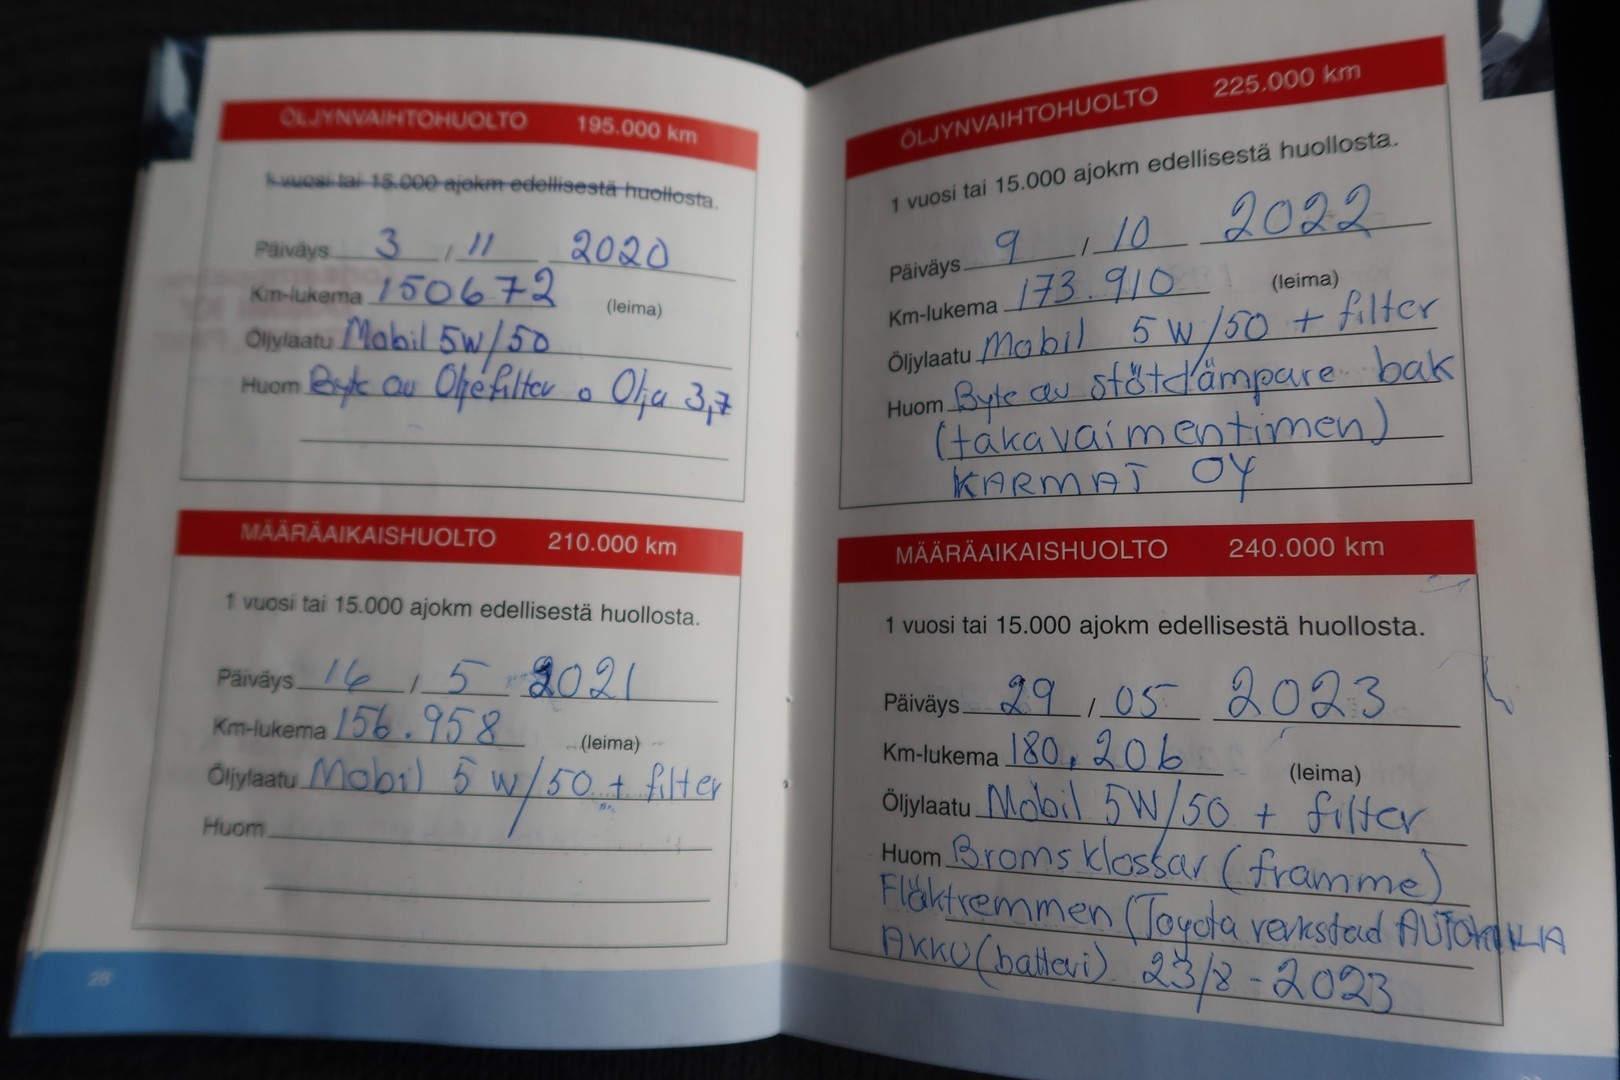 ÖLJYNVAIHTOHUOLTO 195.000 km
1 vuosi tai 15.000 ajokm edellisestä huollosta.
Päiväys 3 / 11 2020
Km-lukema 150672 (leima)
Öljylaatu Mobil 5W/50
Huom Byte av Oljefilter o Olja 3,7
MÄÄRÄAIKAISHUOLTO 210.000 km
1 vuosi tai 15.000 ajokm edellisestä huollosta.
Päiväys 16 / 5 2021
Km-lukema 156.958 (leima)
Öljylaatu Mobil 5 W/50 + filter
Huom
26
ÖLJYNVAIHTOHUOLTO 225.000 km
1 vuosi tai 15.000 ajokm edellisestä huollosta.
Päiväys 9 / 10 2022
Km-lukema 173.910 (leima)
Öljylaatu Mobil 5 W/50 + filter
Huom Byte av stötdämpare bak
(takavaimentimen)
KARMAT OY
MÄÄRÄAIKAISHUOLTO 240.000 km
1 vuosi tai 15.000 ajokm edellisestä huollosta.
Päiväys 29 / 05 2023
Km-lukema 180.206 (leima)
Öljylaatu Mobil 5W/50 + filter
Huom Bromsklossar (framme)
Fläktremmen (Toyota verkstad
AKKU (batteri) 23/8-2023